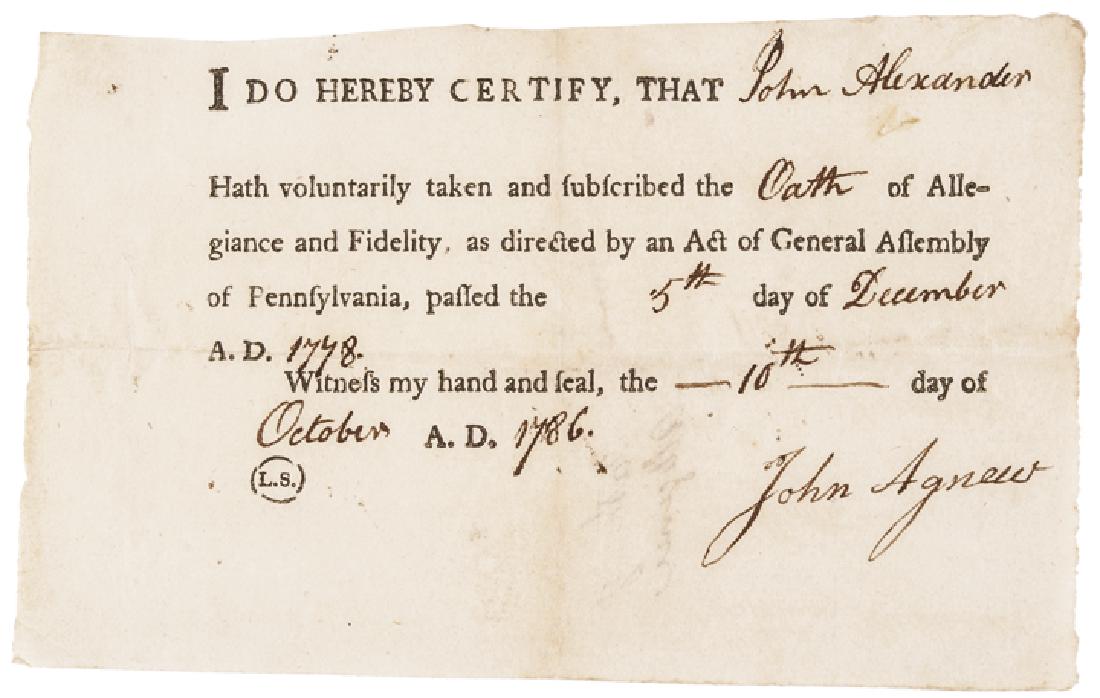 I DO HEREBY CERTIFY, THAT John Alexander
Hath voluntarily taken and ſubſcribed the Oath of Alle-
giance and Fidelity, as directed by an Act of General Aſſembly
of Pennſylvania, paſſed the 5th day of December
A. D. 1778.
Witneſs my hand and ſeal, the — 10th — day of
October A. D. 1786.
(L.S.)
John Agnew